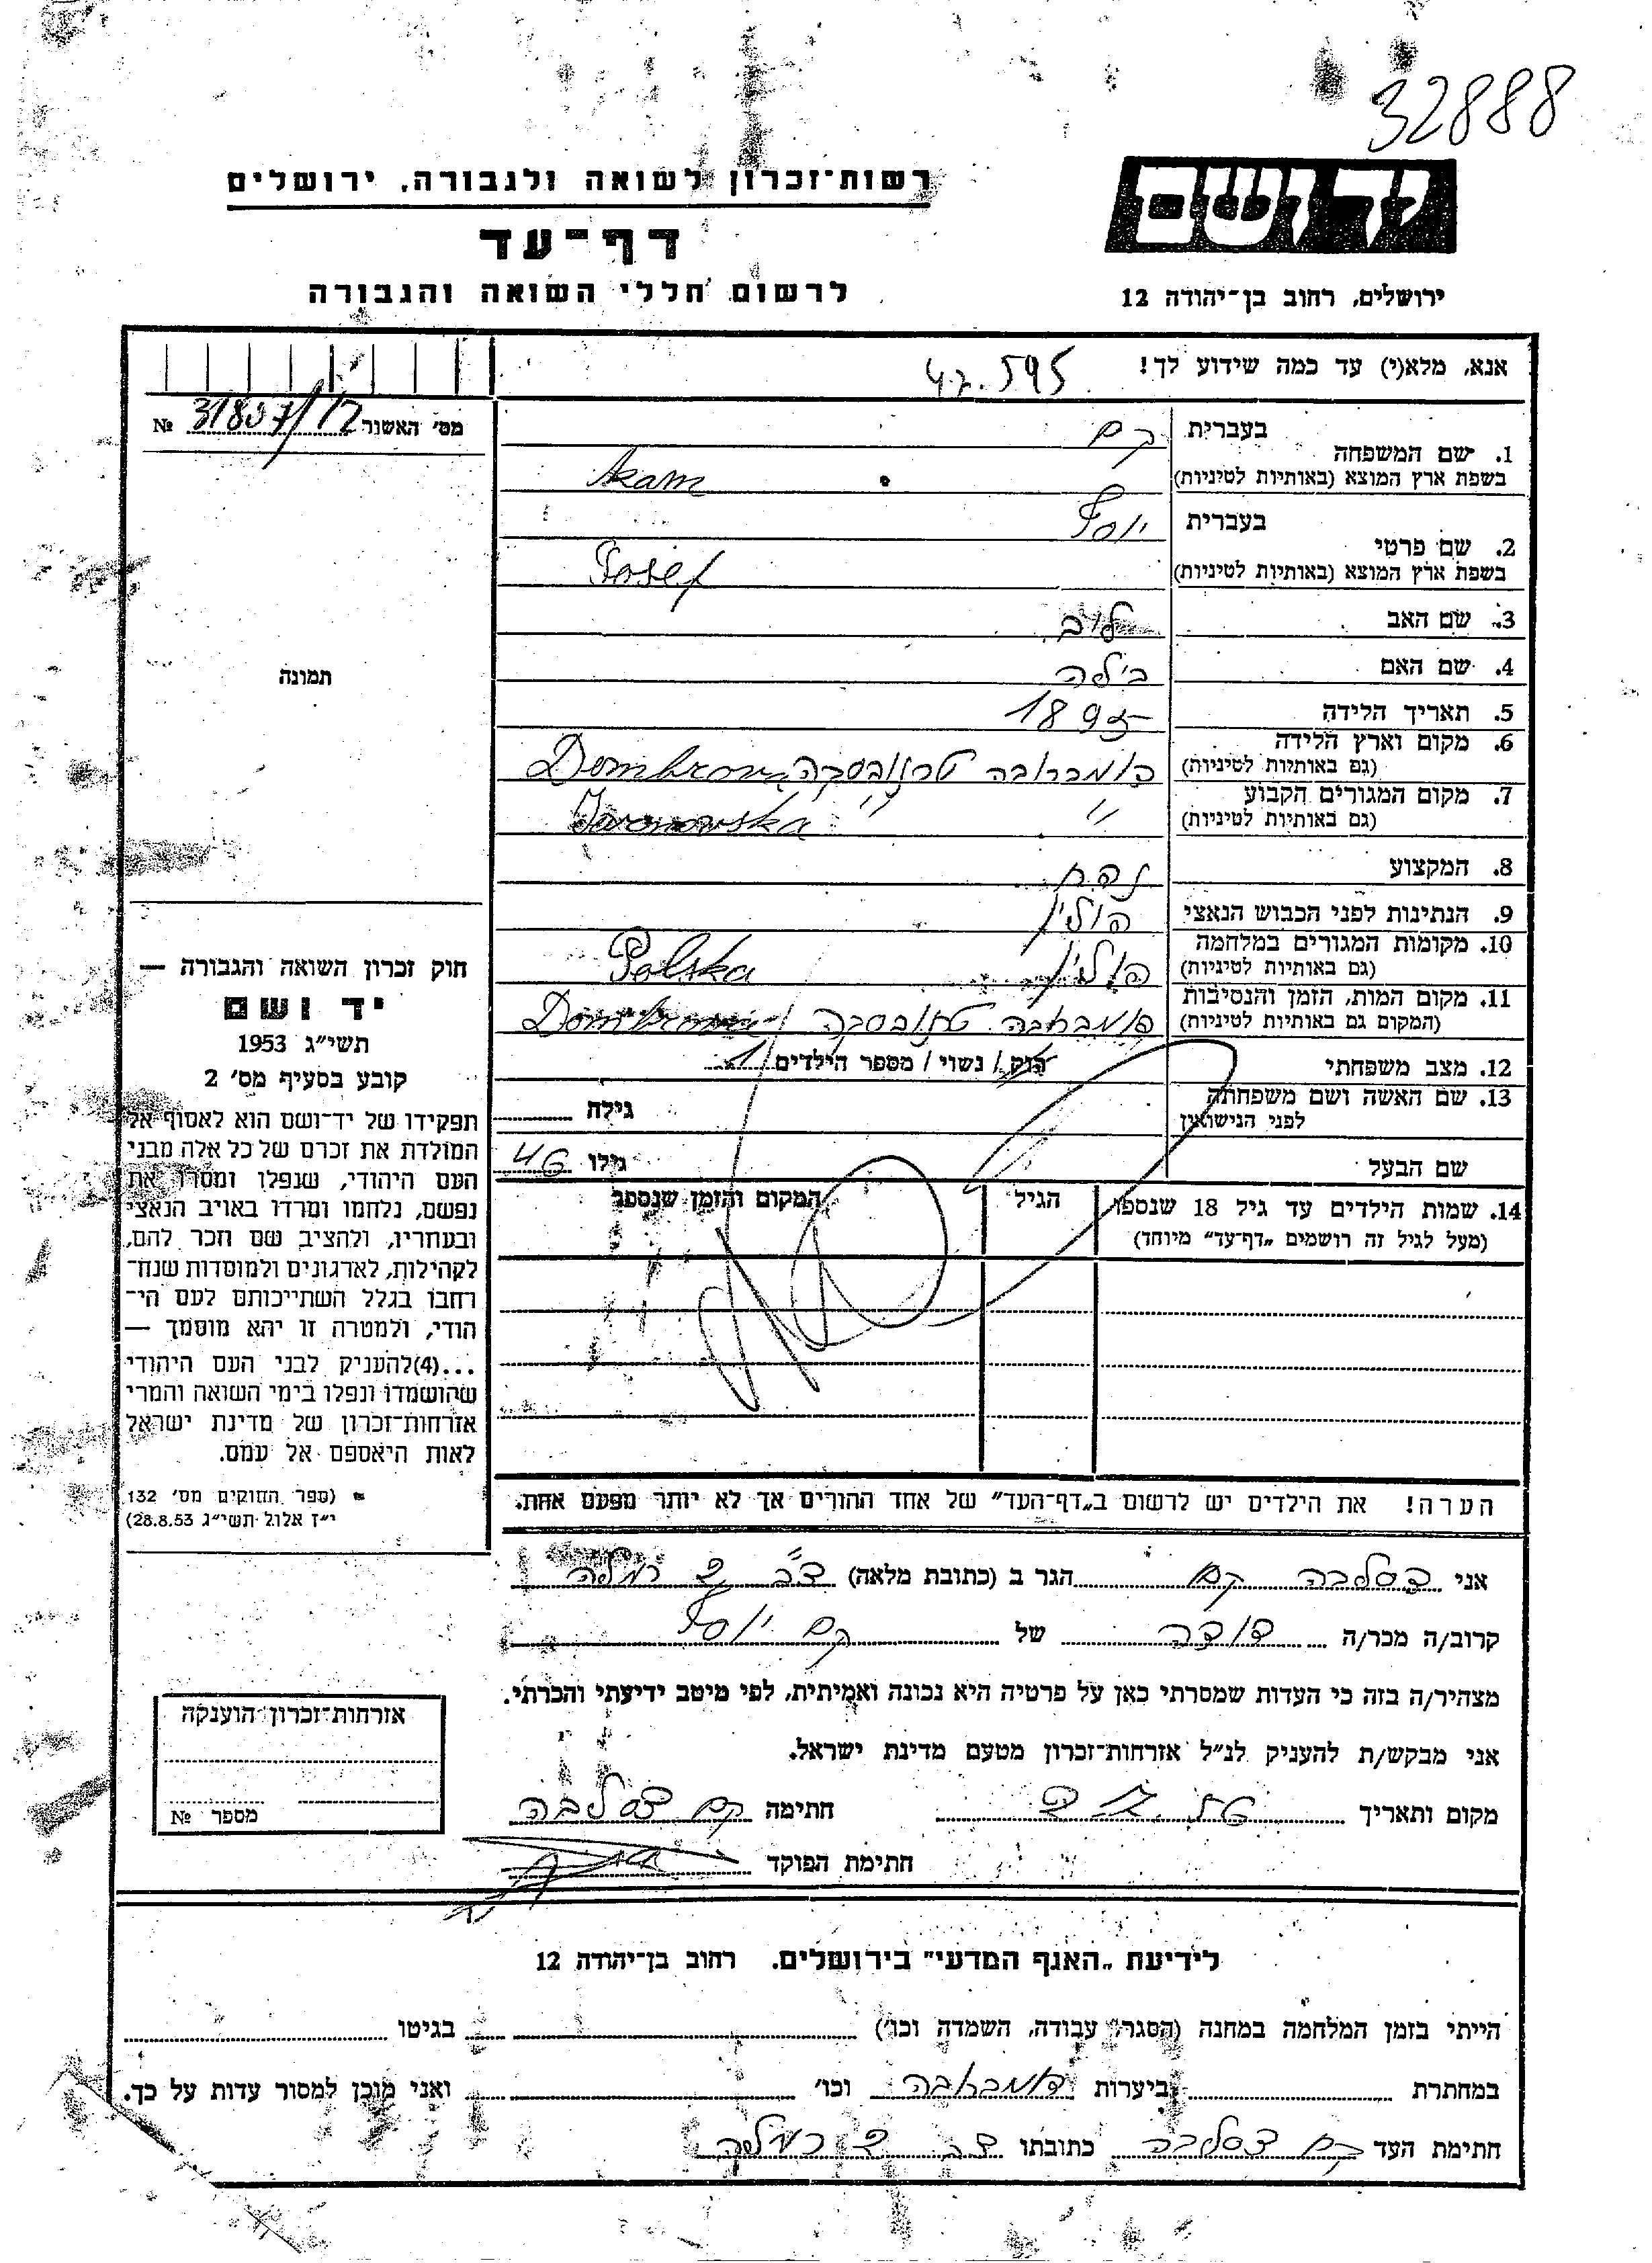 32888
יד ושם
רשות־זכרון לשואה ולגבורה, ירושלים
דף־עד
לרשום חללי השואה והגבורה
ירושלים, רחוב בן־יהודה 12
אנא, מלא(י) עד כמה שידוע לך!
מס׳ האשור 31807/12 №
בעברית קם
1. שם המשפחה
בשפת ארץ המוצא (באותיות לטיניות) Kam
בעברית יוסף
2. שם פרטי
בשפת ארץ המוצא (באותיות לטיניות) Josef
3. שם האב לייב
4. שם האם ביילה
5. תאריך הלידה 1895
6. מקום וארץ הלידה
(גם באותיות לטיניות) דומברובה טרנובסקה Dombrowa
7. מקום המגורים הקבוע
(גם באותיות לטיניות) " " Taronowska
8. המקצוע
9. הנתינות לפני הכבוש הנאצי פולין
10. מקומות המגורים במלחמה
(גם באותיות לטיניות) פולין Polska
11. מקום המות, הזמן והנסיבות
(המקום גם באותיות לטיניות) דומברובה טרנובסקה Dombrowa
12. מצב משפחתי רוק / נשוי / מספר הילדים 1
13. שם האשה ושם משפחתה
לפני הנישואין
גילה
שם הבעל
גילו 46
14. שמות הילדים עד גיל 18 שנספו
(מעל לגיל זה רושמים „דף־עד״ מיוחד)
הגיל
המקום והזמן שנספו
הערה! את הילדים יש לרשום ב„דף־העד״ של אחד ההורים אך לא יותר מפעם אחת.
תמונה
חוק זכרון השואה והגבורה —
יד ושם
תשי״ג 1953
קובע בסעיף מס׳ 2
תפקידו של יד־ושם הוא לאסוף אל
המולדת את זכרם של כל אלה מבני
העם היהודי, שנפלו ומסרו את
נפשם, נלחמו ומרדו באויב הנאצי
ובעוזריו, ולהציב שם וזכר להם,
לקהילות, לארגונים ולמוסדות שנח־
רבו בגלל השתייכותם לעם הי־
הודי, ולמטרה זו יהא מוסמך —
...(4)להעניק לבני העם היהודי
שהושמדו ונפלו בימי השואה והמרי
אזרחות־זכרון של מדינת ישראל
לאות היאספם אל עמם.
(ספר החוקים מס׳ 132
י״ז אלול תשי״ג 28.8.53)
אני קם הגר ב (כתובת מלאה) רמלה
קרוב/ה מכר/ה דודה של קם יוסף
מצהיר/ה בזה כי העדות שמסרתי כאן על פרטיה היא נכונה ואמיתית, לפי מיטב ידיעתי והכרתי.
אני מבקש/ת להעניק לנ״ל אזרחות־זכרון מטעם מדינת ישראל.
מקום ותאריך חתימה קם
חתימת הפוקד
אזרחות־זכרון הוענקה
מספר №
לידיעת „האגף המדעי״ בירושלים. רחוב בן־יהודה 12
הייתי בזמן המלחמה במחנה (הסגר, עבודה, השמדה וכו׳) בגיטו
במחתרת ביערות דומברובה וכו׳ ואני מוכן למסור עדות על כך.
חתימת העד קם כתובתו רמלה